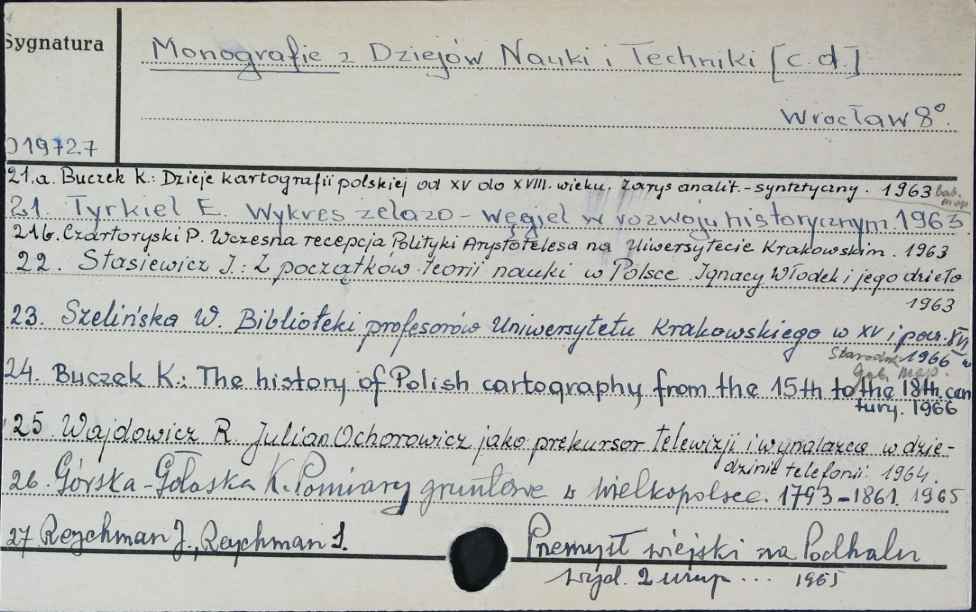 Sygnatura
Monografie z Dziejów Nauki i Techniki [c.d.]
Wrocław 8°.
19727
21.a. Buczek K.: Dzieje kartografii polskiej od XV do XVIII. wieku. Zarys analit.-syntetyczny. 1963 Gab. map
21. Tyrkiel E. Wykres żelazo-węgiel w rozwoju historycznym. 1963
21b. Czartoryski P. Wczesna recepcja Polityki Arystotelesa na Uniwersytecie Krakowskim. 1963
22. Stasiewicz J.: Z początków teorii nauki w Polsce. Ignacy Włodek i jego dzieło
1963
23. Szelińska W. Biblioteki profesorów Uniwersytetu Krakowskiego w XV i pocz. XVI w
1966
24. Buczek K.: The history of Polish cartography from the 15th to the 18th. cen
tury. 1966
Gab. map.
25 Wajdowicz R. Julian Ochorowicz jako prekursor telewizji i wynalazca w dzie-
dzinie telefonii. 1964.
26. Górska-Gołaska K. Pomiary gruntowe w Wielkopolsce. 1793-1861. 1965
27 Reychman J., Reychman S. Przemysł wiejski na Podhalu
wyd. 2 uzup... 1965